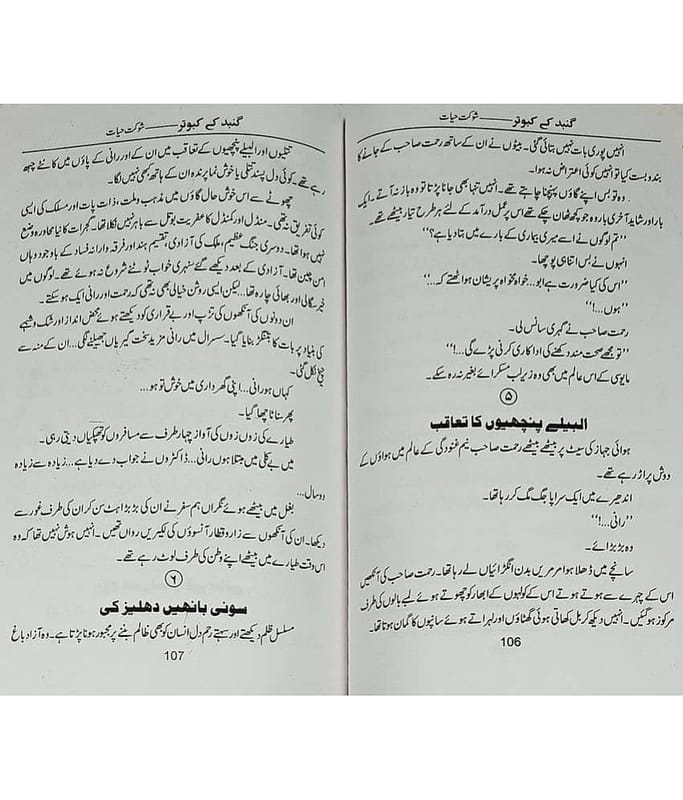 گنبد کے کبوتر ——— شوکت حیات
انہیں پوری بات نہیں بتائی گئی۔ بیٹوں نے ان کے ساتھ رحمت صاحب کے جانے کا
بندوبست کیا تو انہیں کوئی اعتراض نہ ہوا۔
وہ تو بس اپنے گاؤں پہنچنا چاہتے تھے۔ انہیں تنہا بھی جانا پڑتا تو وہ باز نہ آتے۔ ایک
بار اور شاید آخری بار وہ جو کچھ ٹھان چکے تھے اس پر عمل درآمد کے لئے ہر طرح تیار بیٹھے تھے۔
”تم لوگوں نے اسے میری بیماری کے بارے میں بتا دیا ہے؟“
انہوں نے بس اتنا ہی پوچھا۔
”اس کی کیا ضرورت ہے ابو... خواہ مخواہ پریشان ہو اٹھتے کہ...“
”ہوں...!“
رحمت صاحب نے گہری سانس لی۔
”تو مجھے صحت مند دکھنے کی اداکاری کرنی پڑے گی...!“
مایوسی کے اس عالم میں بھی وہ زیر لب مسکرائے بغیر نہ رہ سکے۔
۵
البیلے پنچھیوں کا تعاقب
ہوائی جہاز کی سیٹ پر بیٹھے بیٹھے رحمت صاحب نیم غنودگی کے عالم میں ہواؤں کے
دوش پر اڑ رہے تھے۔
اندھیرے میں ایک سراپا جگ مگ کر رہا تھا۔
”رانی...!“
وہ بڑبڑائے۔
سانچے میں ڈھلا ہوا مرمریں بدن انگڑائیاں لے رہا تھا۔ رحمت صاحب کی آنکھیں
اس کے چہرے سے ہوتے ہوتے اس کے کولہوں کے ابھار کو چھوتے ہوئے لمبے بالوں کی طرف
مرکوز ہو گئیں۔ انہیں دیکھ کر بل کھاتی ہوئی گھٹاؤں اور لہراتے ہوئے سانپوں کا گمان ہوتا تھا۔
106
گنبد کے کبوتر ——— شوکت حیات
تتلیوں اور البیلے پنچھیوں کے تعاقب میں ان کے اور رانی کے پاؤں میں کانٹے چبھ
رہے تھے۔ کوئی دل پسند تتلی یا خوش نما پرندہ ان کے ہاتھ بھی نہیں لگا۔
چھوٹے سے اس خوش حال گاؤں میں مذہب و ملت، ذات پات اور مسلک کی ایسی
کوئی تفریق نہ تھی۔ منڈل اور کمنڈل کا عفریت بوتل سے باہر نہیں نکلا تھا۔ گجرات کا نیا محاورہ وضع
نہیں ہوا تھا۔ دوسری جنگ عظیم، ملک کی آزادی، تقسیم ہند اور فرقہ وارانہ فساد کے باوجود وہاں
امن چین تھا۔ آزادی کے بعد دیکھے گئے سنہری خواب ٹوٹنے شروع نہ ہوئے تھے۔ لوگوں میں
خیر سگالی اور بھائی چارہ تھا... لیکن ایسی روشن خیالی بھی نہ تھی کہ رحمت اور رانی ایک ہو سکتے۔
ان دونوں کی آنکھوں کی تڑپ اور بے قراری کو دیکھتے ہوئے محض انداز اور شک و شبہے
کی بنیاد پر بات کا بتنگڑ بنایا گیا۔ سسرال میں رانی مزید سخت گیریاں جھیلنے لگی... ان کے منہ سے
چیخ نکل گئی۔
کہاں ہو رانی... اپنی گھر داری میں خوش تو ہو...
پھر سناٹا چھا گیا۔
طیارے کی زوں زوں کی آواز چہار طرف سے مسافروں کو تھپکیاں دیتی رہی۔
میں بے کلی میں مبتلا ہوں رانی... ڈاکٹروں نے جواب دے دیا ہے... زیادہ سے زیادہ
دو سال...
بغل میں بیٹھے ہوئے نگراں ہم سفر نے ان کی بڑبڑاہٹ سن کر ان کی طرف غور سے
دیکھا۔ ان کی آنکھوں سے زار و قطار آنسوؤں کی لکیریں رواں تھیں۔ انہیں ہوش نہیں تھا کہ وہ
اس وقت طیارے میں بیٹھے اپنے وطن کی طرف لوٹ رہے تھے۔
۶
سونی بانھیں دھلیز کی
مسلسل ظلم دیکھتے اور سہتے رحم دل انسان کو بھی ظالم بننے پر مجبور ہونا پڑتا ہے۔ وہ آزاد باغ
107